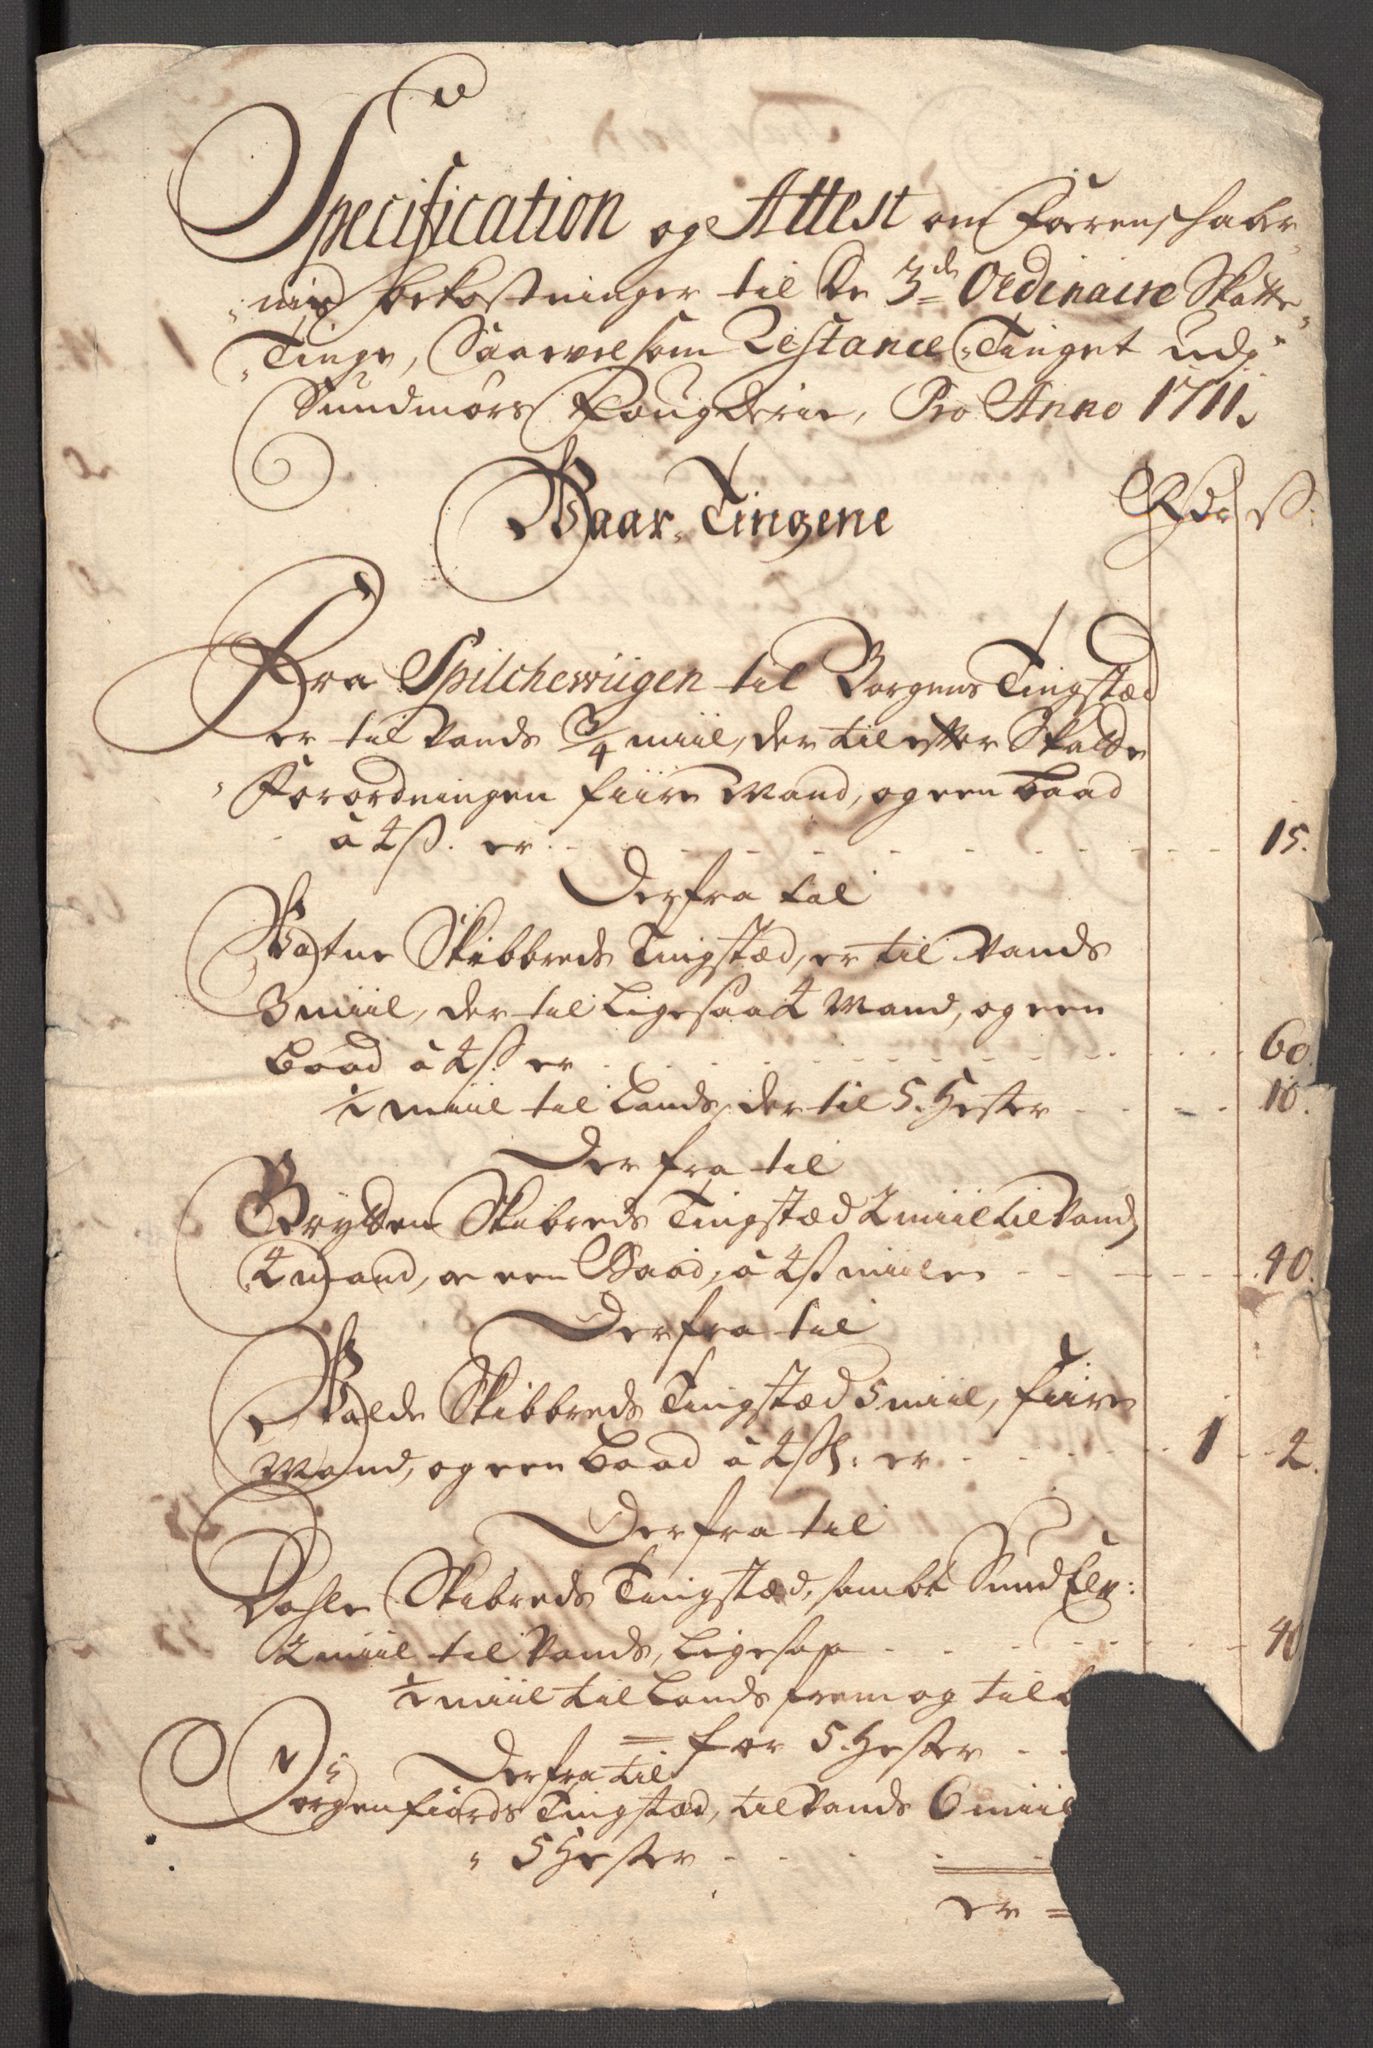 Specification og Attest om Förenschabr
nis bekostninger til de 3de Ordinaire Skatte
Tinge, Saavelsom Restance Tinget udj
Sundmörs Fougderie, Pro Anno 1711.
Rdr ß:
Vaar-Tingene
Fra Spilchewiigen til Borgens Tingstæd
er til Vands 3/4 miil, der til efter Skatte
Forordningen fiire Mand, og een baad
à 4 ß. er 15.
Derfra til
Vatne Skibbreds Tingstæd, er til Vands
3 miil, der til ligesaa 4 Mand, og een
baad à 4 ß er 60.
1/2 miil til Lands, der til 5. Hester 10.
Der fra til
Grytten Skibreds Tingstæd 2 miil til Vands
4 mand, en Baad, à 4 ß miilen 40.
Derfra til
Volde Skibbreds Tingstæd 5 miil, fiire
Mand, og een baad à 4 ß: er 1 2.
Derfra til
Dahle Skibreds Tingstæd, sambt Sund Elv:
2 miil til Vands, ligesaa 40
1/2 miil til Lands frem og til
= for 5. Hester
Derfra til
Jörgenfiords Tingstæd, til Vands 6 miil
5 Hester
er =